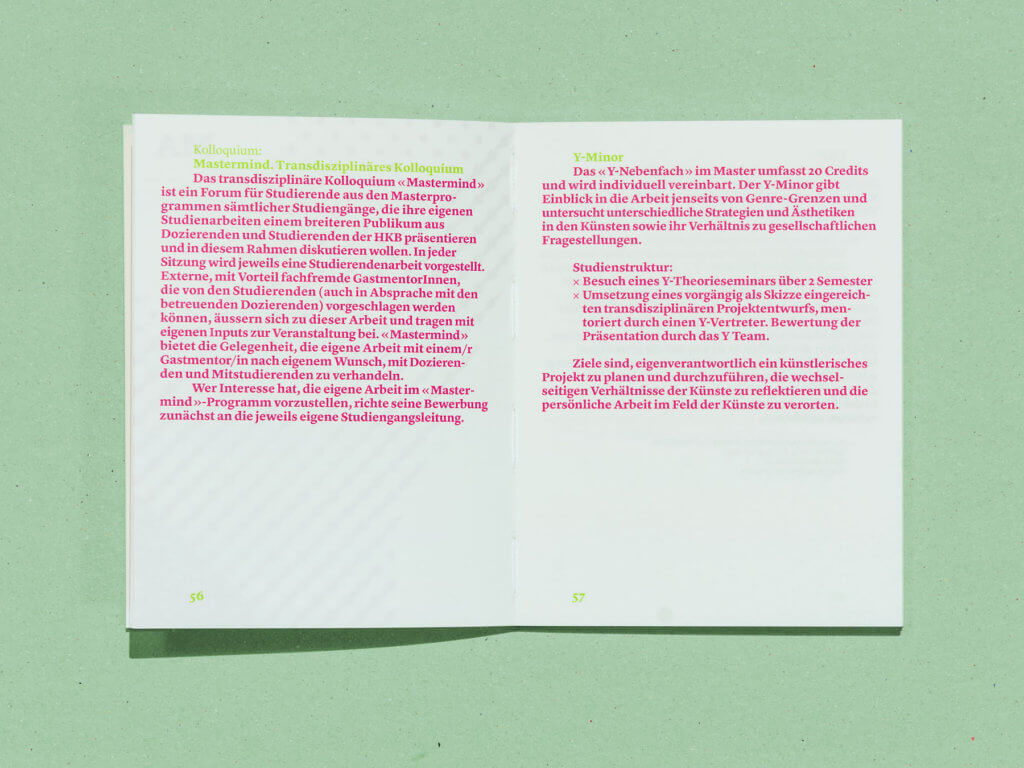 Kolloquium:
Mastermind. Transdisziplinäres Kolloquium
Das transdisziplinäre Kolloquium «Mastermind»
ist ein Forum für Studierende aus den Masterpro-
grammen sämtlicher Studiengänge, die ihre eigenen
Studienarbeiten einem breiteren Publikum aus
Dozierenden und Studierenden der HKB präsentieren
und in diesem Rahmen diskutieren wollen. In jeder
Sitzung wird jeweils eine Studierendenarbeit vorgestellt.
Externe, mit Vorteil fachfremde GastmentorInnen,
die von den Studierenden (auch in Absprache mit den
betreuenden Dozierenden) vorgeschlagen werden
können, äussern sich zu dieser Arbeit und tragen mit
eigenen Inputs zur Veranstaltung bei. «Mastermind»
bietet die Gelegenheit, die eigene Arbeit mit einem/r
Gastmentor/in nach eigenem Wunsch, mit Dozieren-
den und Mitstudierenden zu verhandeln.
Wer Interesse hat, die eigene Arbeit im «Master-
mind»-Programm vorzustellen, richte seine Bewerbung
zunächst an die jeweils eigene Studiengangsleitung.
56
Y-Minor
Das «Y-Nebenfach» im Master umfasst 20 Credits
und wird individuell vereinbart. Der Y-Minor gibt
Einblick in die Arbeit jenseits von Genre-Grenzen und
untersucht unterschiedliche Strategien und Ästhetiken
in den Künsten sowie ihr Verhältnis zu gesellschaftlichen
Fragestellungen.
Studienstruktur:
× Besuch eines Y-Theorieseminars über 2 Semester
× Umsetzung eines vorgängig als Skizze eingereich-
ten transdisziplinären Projektentwurfs, men-
toriert durch einen Y-Vertreter. Bewertung der
Präsentation durch das Y Team.
Ziele sind, eigenverantwortlich ein künstlerisches
Projekt zu planen und durchzuführen, die wechsel-
seitigen Verhältnisse der Künste zu reflektieren und die
persönliche Arbeit im Feld der Künste zu verorten.
57